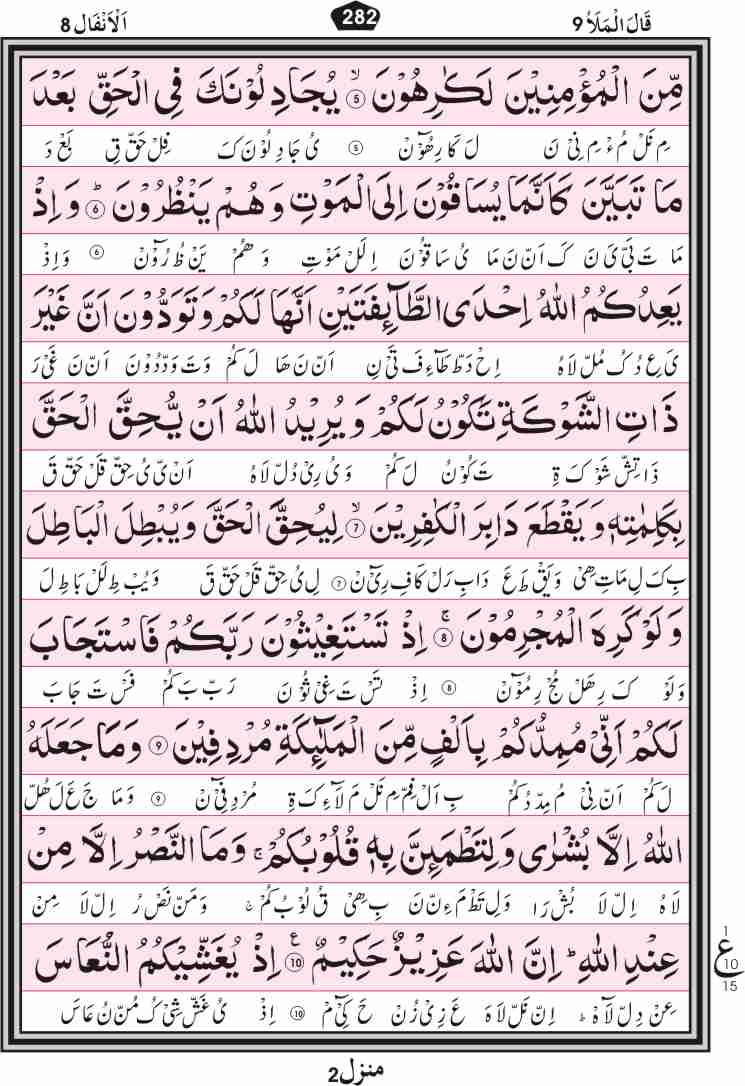 قَالَ الْمَلَاُ 9 282 اَلْاَنْفَال 8
مِّنَ الْمُؤْمِنِيْنَ لَكٰرِهُوْنَ ۙ5 يُجَادِلُوْنَكَ فِى الْحَقِّ بَعْدَ
مِ نَلْ مُ ءْ مِ نِىْ نَ لَ كَا رِ هُوْٓنْ 5 ىُ جَا دِ لُوْ نَ كَ فِلْ حَقّ قِ بَعْ دَ
مَا تَبَيَّنَ كَاَنَّمَا يُسَاقُوْنَ اِلَى الْمَوْتِ وَهُمْ يَنْظُرُوْنَ ؕ6 وَاِذْ
مَا تَ بَىّ ىَ نَ كَ اَنّ نَ مَا ىُ سَا قُوْ نَ اِ لَلْ مَوْتِ وَ هُمْ يَنْ ظُ رُوْٓنْ 6 وَ اِذْ
يَعِدُكُمُ اللّٰهُ اِحْدَى الطَّآئِفَتَيْنِ اَنَّهَا لَكُمْ وَتَوَدُّوْنَ اَنَّ غَيْرَ
ىَ عِ دُ كُ مُلّ لَا هُ اِحْ دَطّ طَآءِ فَ تَىْ نِ اَنّ نَ هَا لَ كُمْ وَتَ وَدّ دُوْ نَ اَنّ نَ غَىْ رَ
ذَاتِ الشَّوْكَةِ تَكُوْنُ لَكُمْ وَيُرِيْدُ اللّٰهُ اَنْ يُّحِقَّ الْحَقَّ
ذَا تِشّ شَوْ كَ ةِ تَ كُوْ نُ لَ كُمْ وَ ىُ رِىْ دُلّ لَا هُ اَنْ ىّ ىُ حِقّ قَلْ حَقّ قَ
بِكَلِمٰتِهٖ وَيَقْطَعَ دَابِرَ الْكٰفِرِيْنَ ۙ7 لِيُحِقَّ الْحَقَّ وَيُبْطِلَ الْبَاطِلَ
بِ كَ لِ مَاتِ هِىْ وَيَقْ طَ عَ دَابِ رَلْ كَافِ رِىْٓ نْ 7 لِ ىُ حِقّ قَلْ حَقّ قَ وَيُبْ طِ لَلْ بَا طِ لَ
وَلَوْ كَرِهَ الْمُجْرِمُوْنَ ۚ8 اِذْ تَسْتَغِيْثُوْنَ رَبَّكُمْ فَاسْتَجَابَ
وَ لَوْ كَ رِ هَلْ مُجْ رِ مُوْٓنْ 8 اِذْ تَسْ تَ غِىْ ثُوْ نَ رَبّ بَ كُمْ فَسْ تَ جَا بَ
لَكُمْ اَنِّىْ مُمِدُّكُمْ بِاَلْفٍ مِّنَ الْمَلٰٓئِكَةِ مُرْدِفِيْنَ 9 وَمَا جَعَلَهُ
لَ كُمْ اَنّ نِىْ مُ مِدّ دُ كُمْ بِ اَلْ فِمّ مِ نَلْ مَ لَآءِ كَ ةِ مُرْ دِ فِىْٓ نْ 9 وَ مَا جَ عَ لَ هُلّ
اللّٰهُ اِلَّا بُشْرٰى وَلِتَطْمَئِنَّ بِهٖ قُلُوْبُكُمْ ۚ وَمَا النَّصْرُ اِلَّا مِنْ
لَا هُ اِلّ لَا بُشْ رَا وَلِ تَطْ مَ ءِ نّ نَ بِ هِىْ قُ لُوْ بُ كُمْ ۚ وَ مَنّ نَصْ رُ اِلّ لَا مِنْ
عِنْدِ اللّٰهِ ؕ اِنَّ اللّٰهَ عَزِيْزٌ حَكِيْمٌ ع10 اِذْ يُغَشِّيْكُمُ النُّعَاسَ
عِنْ دِلّ لَآهْ ؕ اِنّ نَلّ لَا هَ عَ زِىْ زُ نْ حَ كِىْٓ مْ 10 اِذْ ىُ غَشّ شِىْ كُ مُنّ نُ عَاسَ
1
ع
10
15
منزل2